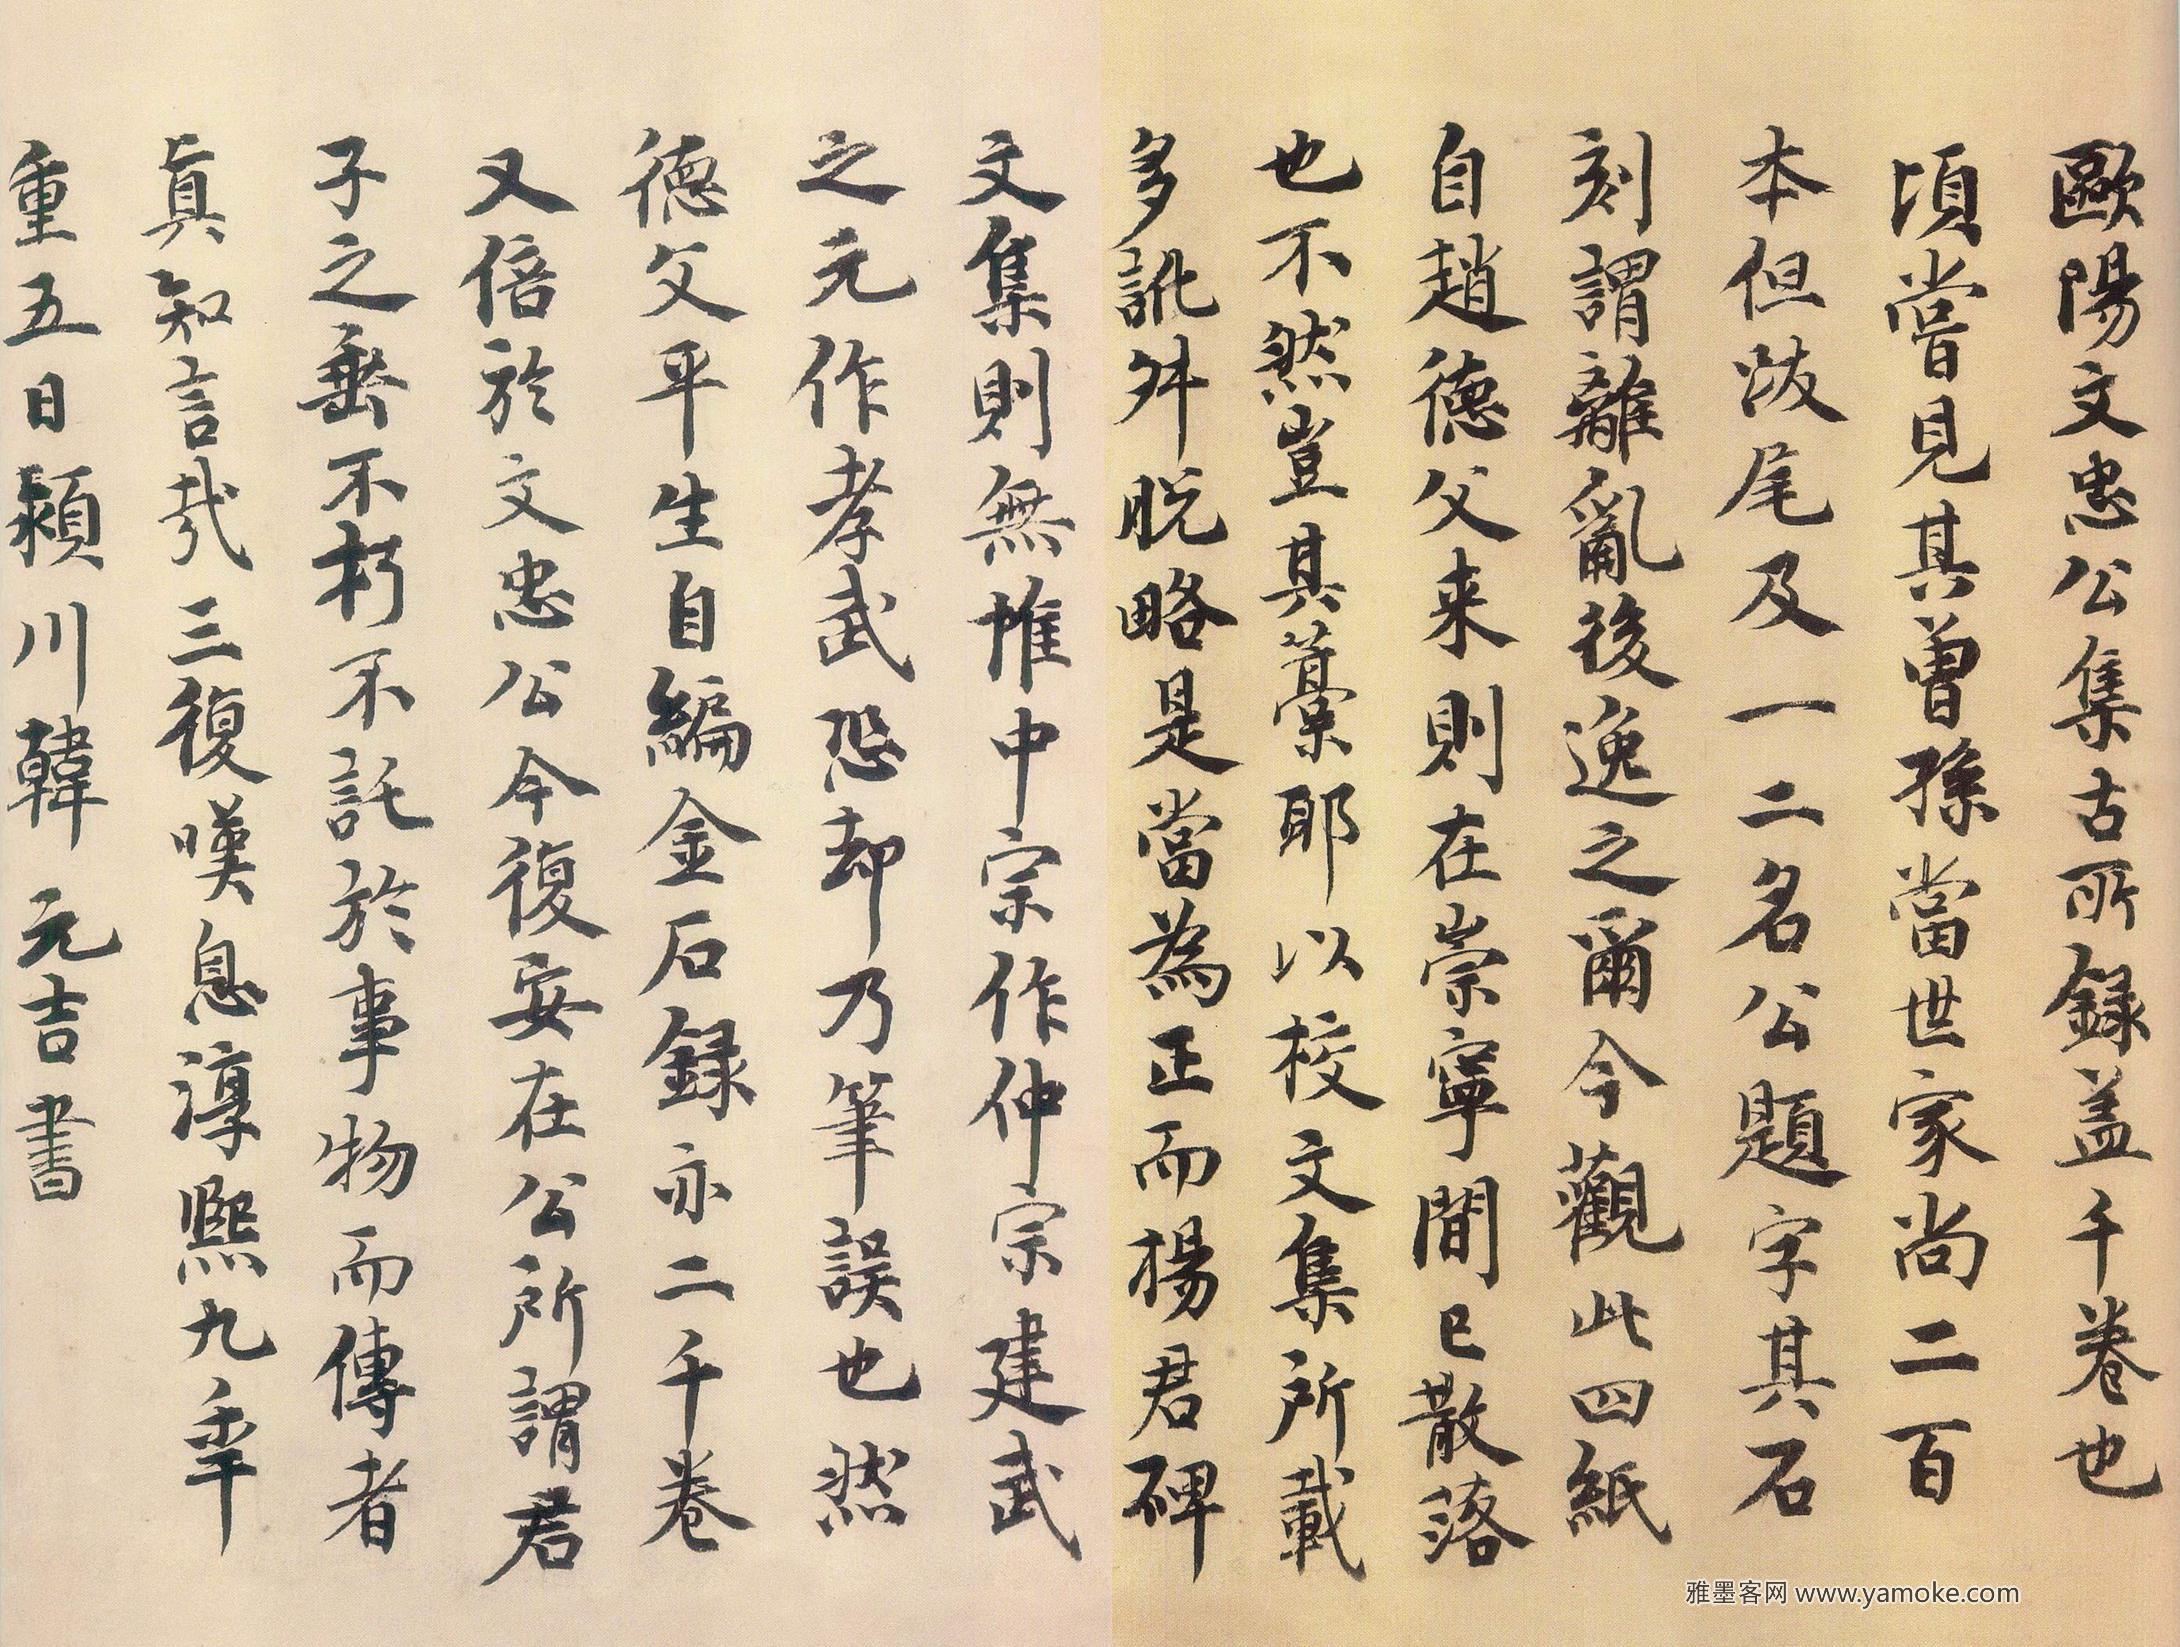 歐陽文忠公集古所録盖千卷也
頃嘗見其曽孫當世家尚二百
本但跋尾及一二名公題字其石
刻謂離亂後逸之爾今觀此四紙
自趙德父来則在崇寧間已散落
也不然豈其藁耶以校文集所載
多訛舛脱略是當為正而楊君碑
文集則無惟中宗作仲宗建武
之元作孝武恐却乃筆誤也然
德父平生自編金石録亦二千卷
又倍於文忠公今復安在公所謂君
子之垂不朽不託於事物而傳者
真知言哉三復嘆息淳熙九年
重五日潁川韓元吉書
雅墨客网 www.yamoke.com